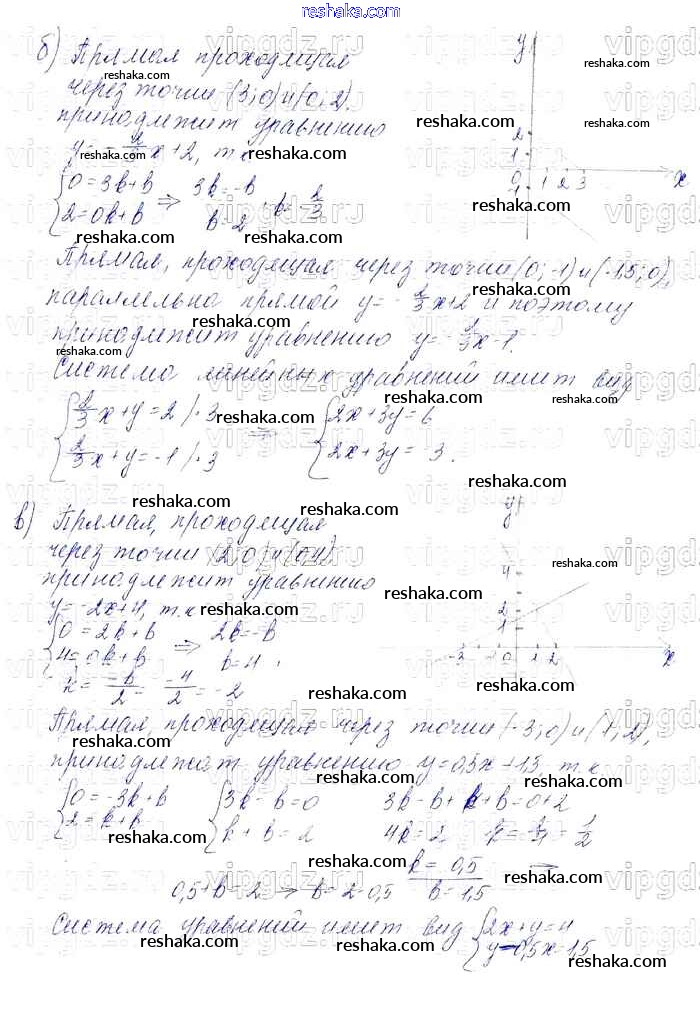 б) Прямая проходящая
через точки (3; 0) и (0; 2)
принадлежит уравнению
y = -2/3x + 2, т.к
{0 = 3k + b ⇒ 3k = -b
{2 = 0k + b b = 2 k = -2/3
Прямая, проходящая через точки (0; -1) и (-1,5; 0),
параллельна прямой y = -2/3x + 2 и поэтому
принадлежит уравнению y = -2/3x - 1.
Система линейных уравнений имеет вид
{2/3x + y = 2 /·3 ⇒ {2x + 3y = 6
{2/3x + y = -1 /·3 {2x + 3y = -3.
в) Прямая, проходящая
через точки (2; 0) и (0; 4)
принадлежит уравнению
y = -2x + 4, т.к
{0 = 2k + b ⇒ 2k = -b
{4 = 0k + b b = 4
k = -b/2 = -4/2 = -2
Прямая, проходящая через точки (-3; 0) и (1; 2),
принадлежит уравнению y = 0,5x + 1,5, т.к
{0 = -3k + b {3k - b = 0 3k - b + k + b = 0 + 2
{2 = k + b {k + b = 2 4k = 2 1/2
k = 0,5 ⇒
0,5 + b = 2 ⇒ b = 2 - 0,5 b = 1,5
Система уравнений имеет вид {2x + y = 4
{y - 0,5x = 1,5
y
2
1
0
-1
1 2 3
x
y
4
2
1
-3
-2
0
1 2
x
reshaka.com
vipgdz.ru